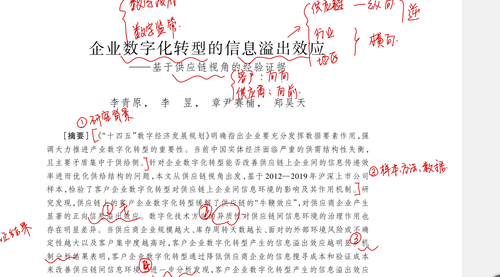 数字
数字监管
供应链 — 纵向
行业
地区
横向
企业数字化转型的信息溢出效应
——基于供应链视角的经验证据
客户：向
供应商：向前
李青原， 李昱， 章尹赛楠， 郑昊天
①研究背景
[摘要]《“十四五”数字经济发展规划》明确指出企业要充分发挥数据要素作用，强
调大力推进产业数字化转型的重要性。当前中国实体经济面临严重的供需结构性失衡，
且主要矛盾集中于供给侧。针对企业数字化转型能否改善供应链上企业间的信息传递效
率进而优化供给结构的问题，本文从供应链视角出发，基于2012—2019年沪深上市公司
②样本、方法、数据
样本，检验了客户企业数字化转型对供应链上企业间信息环境的影响及其作用机制。研
究发现，供应链上的客户数字化转型缓解了供应链的“牛鞭效应”，对供应商企业产生
显著的正向信息溢出效应。数字化技术方 异质性对供应链间信息环境的治理作用也
存在明显差异。当供应商企业规模越大、库存周转天数越长、面对的外部环境风险或不确
定性越大以及客户集中度越高时，客户企业数字化转型产生的信息溢出效应越明显。机
制分析结果表明，客户企业数字化转型通过降低供应商企业的信息搜寻成本和验证成本
来改善供应链间信息环境。进一步分析发现，客户企业数字化转型产生的信息溢出效应
结果